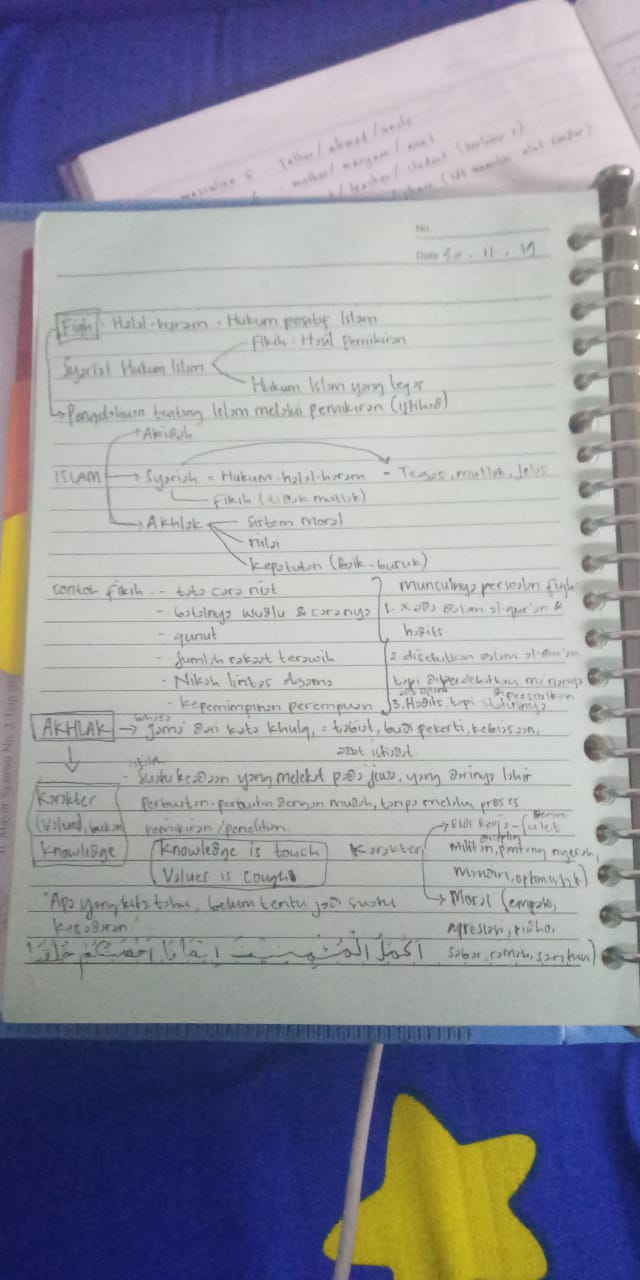 masculine : father / ahmad / uncle
: mother / maryam / aunt
/ teacher / student
No
Date 30 . 11 . 19
Fiqh : Halal-haram . Hukum positif Islam
Syariat Hukum Islam
Fikih . Hasil pemikiran
Hukum Islam yang tegas
Pengetahuan tentang Islam melalui pemikiran (ijtihad)
ISLAM
Akidah
Syariah = Hukum halal-haram - Tegas, mutlak, jelas
Fikih (tidak mutlak)
Akhlak
Sistem moral
Nilai
Kepatutan (Baik-buruk)
Contoh fikih : - tata cara niat
- batalnya wudlu & caranya
- qunut
- Jumlah rakaat terawih
- Nikah lintas Agama
- Kepemimpinan perempuan
munculnya persoalan fiqh
1. dalam al-qur'an & hadits
2. disebutkan dalam al-Qur'an tapi diperdebatkan maknanya
3. Hadits, tapi dipersoalkan statusnya
AKHLAK → bahasa jama' dari kata khulq, = tabiat, budi pekerti, kebiasaan, adat istiadat.
istilah
- Suatu keadaan yang melekat pada jiwa, yang darinya lahir
perbuatan-perbuatan dengan mudah, tanpa melalui proses
pemikiran / penelitian.
Karakter
(values), bukan
knowledge
Knowledge is touch
Values is cough
Karakter
Etos kerja - (ulet, berani
Militan, disiplin, pantang nyerah,
mandiri, optimistik)
Moral (empati,
apresiasi, ridho,
sabar, ramah, santun)
"Apa yang kita tahu, belum tentu jadi suatu
kesadaran."
أكمل المؤمنين إيمانا أحسنكم خلقا